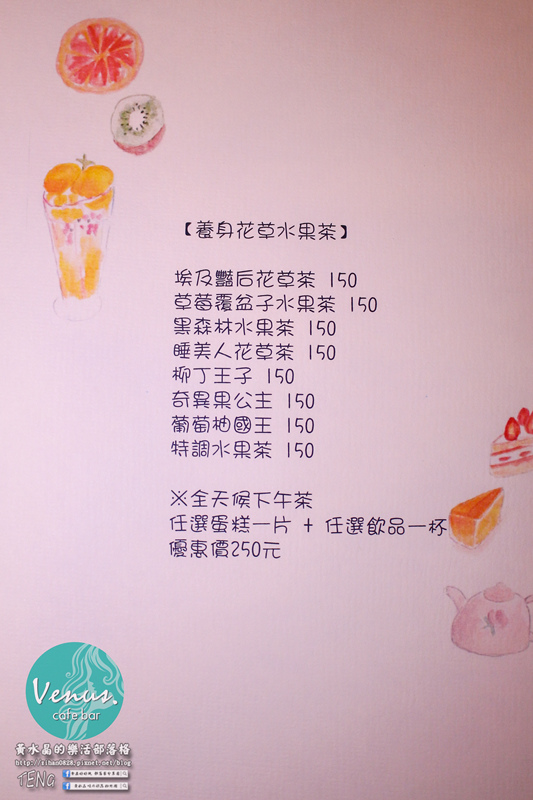 【養身花草水果茶】
埃及豔后花草茶 150
草莓覆盆子水果茶 150
黑森林水果茶 150
睡美人花草茶 150
柳丁王子 150
奇異果公主 150
葡萄柚國王 150
特調水果茶 150
※全天候下午茶
任選蛋糕一片 + 任選飲品一杯
優惠價250元
Venus.
cafe bar
黃水晶的樂活部落格
http://sihan0828.pixnet.net/blog
TENG